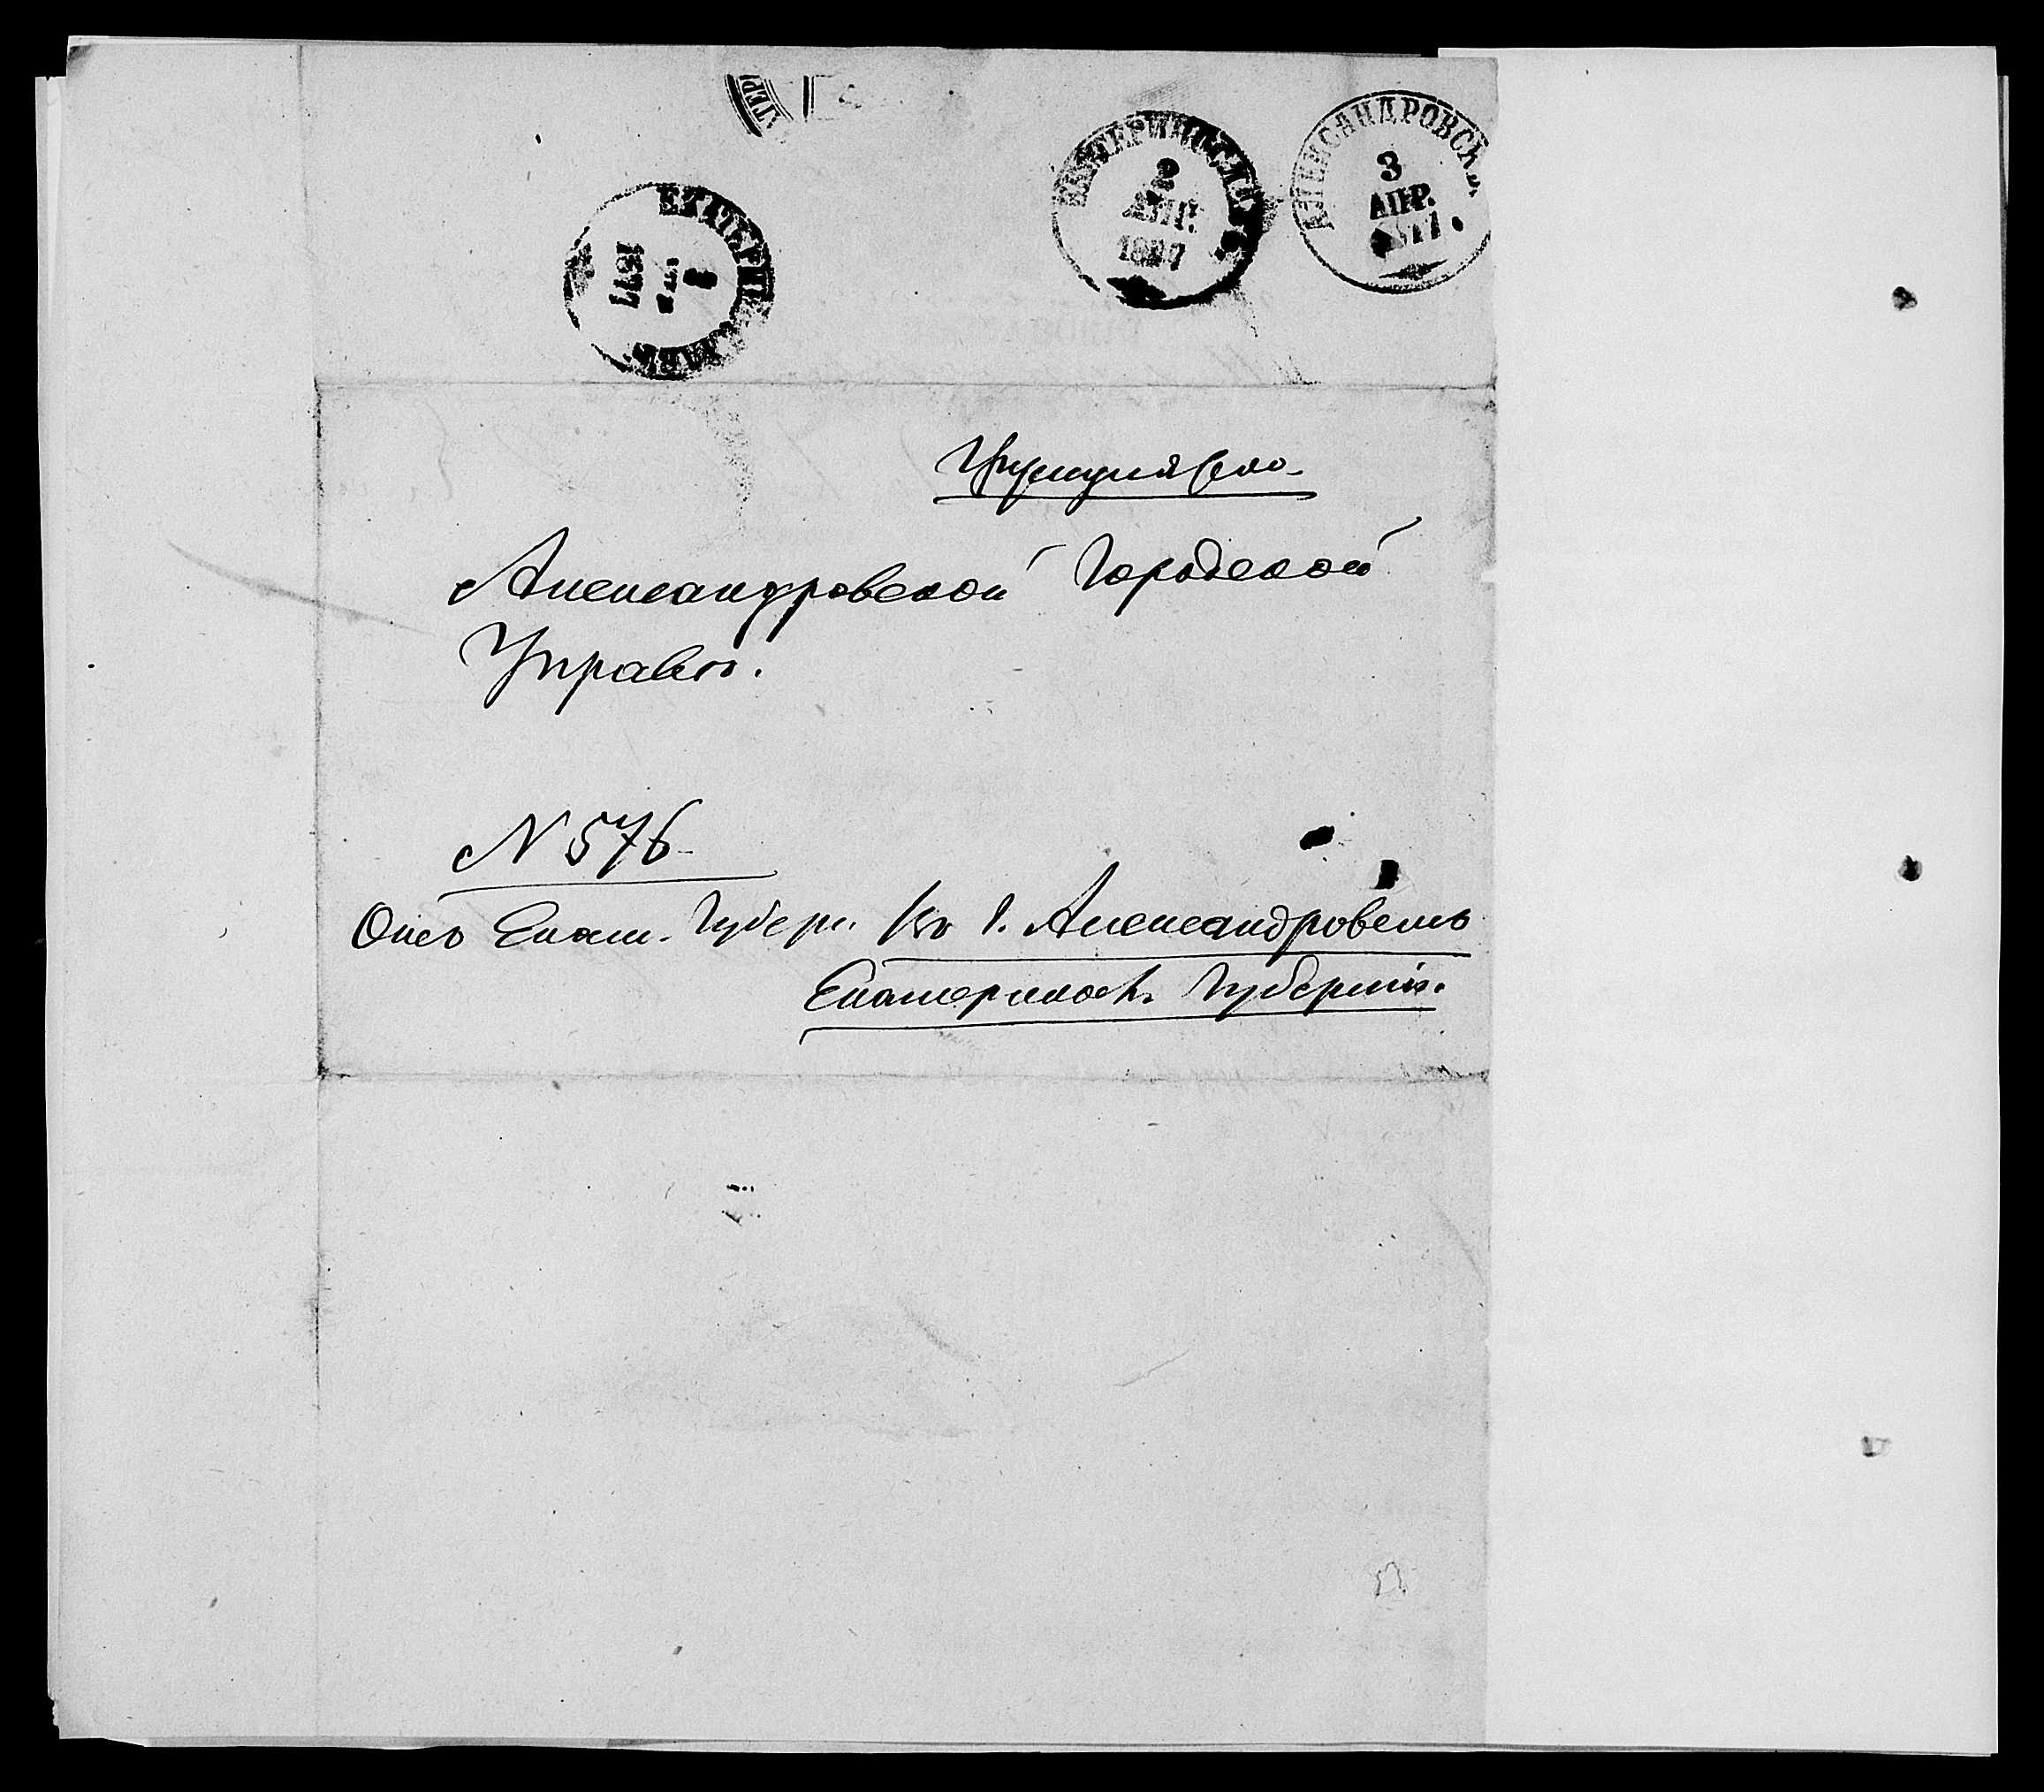 АТЕР
ЕКАТЕРИНОСЛАВЪ
2
АПР.
1877
АЛЕКСАНДРОВСКЪ
3
АПР.
1877
ЕКАТЕРИНОСЛАВЪ
1877
Циркулярно
Александровской Городской
Управѣ.
N 576
Отъ Екат. Губерн. Въ г. Александровскъ
Екатериносл. Губерніи.